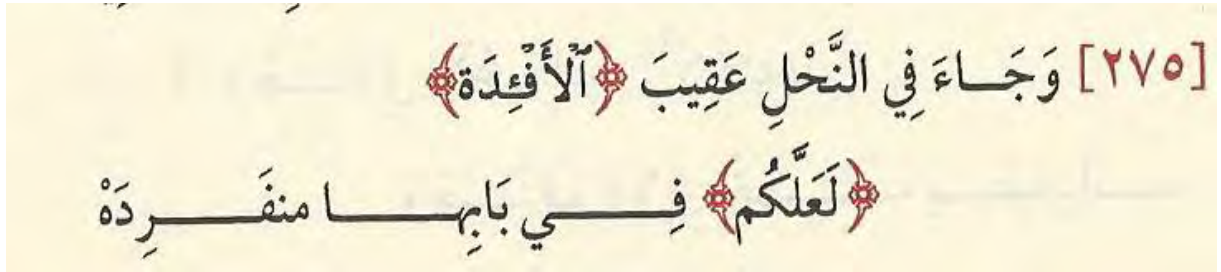 [٢٧٥] وَجَاءَ فِي النَّحْلِ عَقِيبَ ﴿ٱلْأَفْـِٔدَة﴾
﴿لَعَلَّكُم﴾ فِي بَابِهَا منفَرِدَهْ